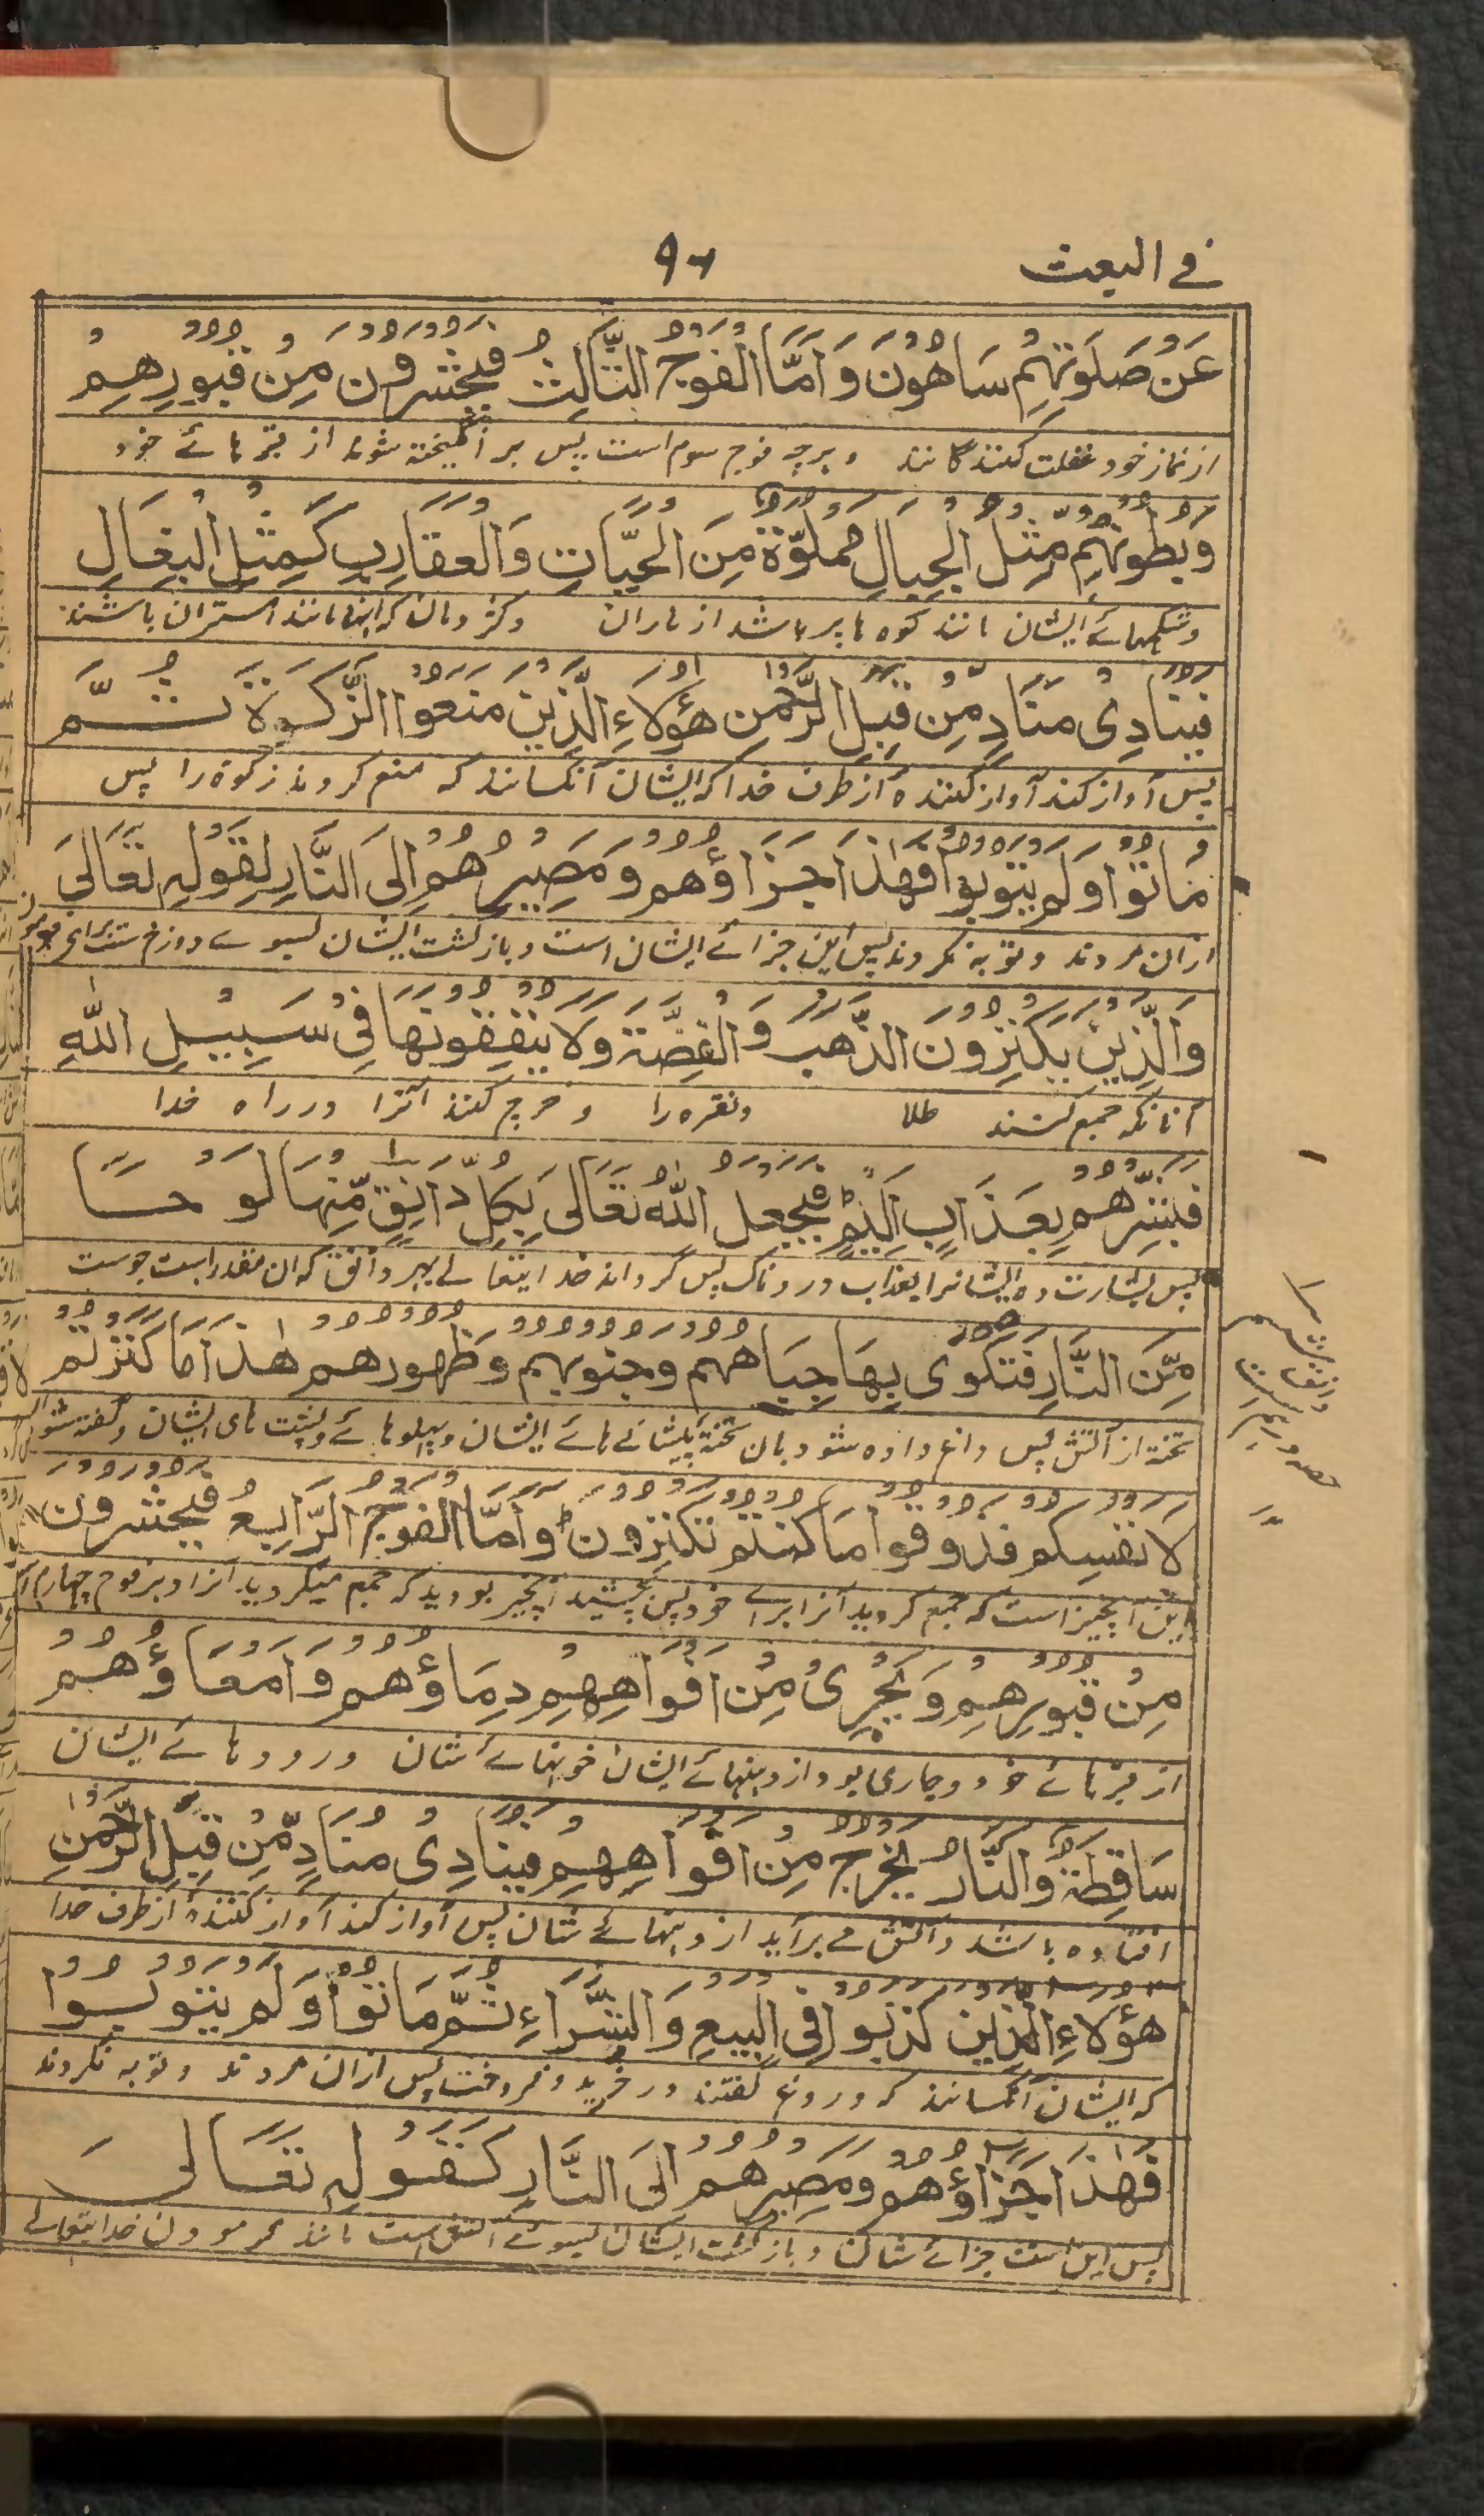 في البعث
٩٦
عَنْ صَلٰوتِهِمْ سَاهُوْنَ وَاَمَّا الْفَوْجُ الثَّالِثُ فَيُحْشَرُوْنَ مِنْ قُبُوْرِهِمْ
از نماز خود غفلت کنندگانند و هرچه فوج سوم است پس بر انگیخته شوند از قبر هائے خود
وَبُطُوْنُهُمْ مِّثْلُ الْجِبَالِ مَمْلُوَّةٌ مِنَ الْحَيَّاتِ وَالْعَقَارِبِ كَمِثْلِ الْبِغَالِ
وشکمهائے ایشان مانند کوه ها پر باشد از ماران وکژدمان که اینها مانند استران باشند
فَيُنَادِىْ مُنَادٍ مِّنْ قِبَلِ الرَّحْمٰنِ هٰؤُلَاءِ الَّذِيْنَ مَنَعُوا الزَّكٰوةَ ثُمَّ
پس آواز کند آواز کننده از طرف خدا که ایشان آنکسانند که منع کردند زکوة را پس
مَاتُوْا وَلَمْ يَتُوْبُوْا فَهٰذَا جَزَاؤُهُمْ وَمَصِيْرُهُمْ اِلَى النَّارِ لِقَوْلِهٖ تَعَالٰى
ازان مردند و توبه نکردند پس این جزائے ایشان است و بازگشت ایشان بسوے دوزخ ست
وَالَّذِيْنَ يَكْنِزُوْنَ الذَّهَبَ وَالْفِضَّةَ وَلَا يُنْفِقُوْنَهَا فِىْ سَبِيْلِ اللّٰهِ
آنانکه جمع کنند طلا ونقره را و خرج کنند آنرا در راه خدا
فَبَشِّرْهُمْ بِعَذَابٍ اَلِيْمٍ فَيَجْعَلُ اللّٰهُ تَعَالٰى بِكُلِّ دَانِقٍ مِّنْهَا لَوْحًا
پس بشارت ده ایشانرا بعذاب دردناک پس گرداند خدایتعالے بهر دانق که ان مقدار است
مِّنَ النَّارِ فَتُكْوٰى بِهَا جِبَاهُهُمْ وَجُنُوْبُهُمْ وَظُهُوْرُهُمْ هٰذَا مَا كَنَزْتُمْ
تخته از آتش پس داغ داده شود بان تخته پیشانے هائے ایشان و پهلوهائے و پشت های ایشان و گفته شود
لِاَنْفُسِكُمْ فَذُوْقُوْا مَا كُنْتُمْ تَكْنِزُوْنَ وَاَمَّا الْفَوْجُ الرَّابِعُ فَيُحْشَرُوْنَ
این آنچیز است که جمع کردید آنرا برائے خود پس بچشید آنچیز بودید که جمع میکردید آنرا و هر فوج چهارم
مِنْ قُبُوْرِهِمْ وَيَجْرِىْ مِنْ اَفْوَاهِهِمْ دِمَاؤُهُمْ وَاَمْعَاؤُهُمْ
از قبر هائے خود و جاری بود از دهنهائے ایشان خونهائے شان و رودهائے ایشان
سَاقِطَةٌ وَالنَّارُ يَخْرُجُ مِنْ اَفْوَاهِهِمْ فَيُنَادِىْ مُنَادٍ مِّنْ قِبَلِ الرَّحْمٰنِ
افتاده باشد و آتش مے برآید از دهنهائے شان پس آواز کند آواز کننده از طرف خدا
هٰؤُلَاءِ الَّذِيْنَ كَذَبُوْا فِى الْبَيْعِ وَالشِّرَاءِ ثُمَّ مَاتُوْا وَلَمْ يَتُوْبُوْا
که ایشان آنکسانند که دروغ گفتند در خرید و فروخت پس ازان مردند و توبه نکردند
فَهٰذَا جَزَاؤُهُمْ وَمَصِيْرُهُمْ اِلَى النَّارِ كَقَوْلِهٖ تَعَالٰى
پس این است جزائے شان و بازگشت ایشان بسوئے آتش است مانند فرمودن خدایتعالے